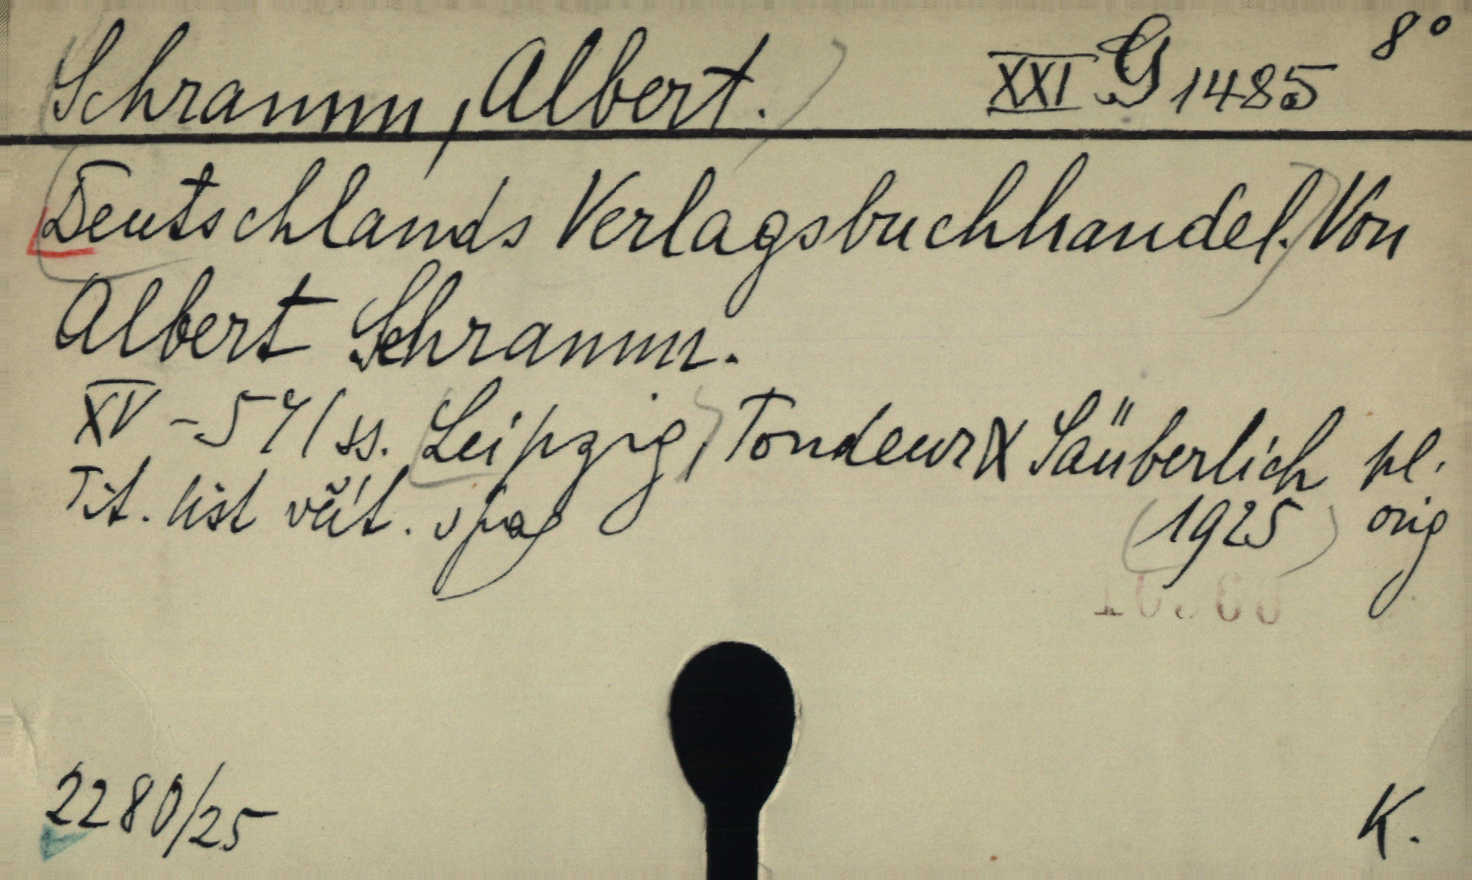 Schramm, Albert. XXI G 1485 8°
Deutschlands Verlagsbuchhandel. Von
Albert Schramm.
XV - 571 ss. Leipzig, Tondeur & Säuberlich pl.
Tit. list
1925 orig
2280/25
K.